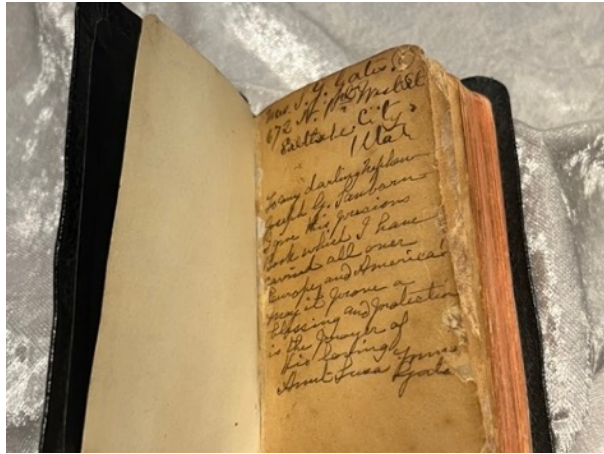 Mrs. J. Y. Gates.
672 N. 1st West
Salt Lake City,
Utah
To my darling nephew
Joseph G. Sanborn
I give this presious
Book which I have
carried all over
Europe and America
may it prove a
blessing and protection
is the prayer of
his loving
Aunt Susa Gates